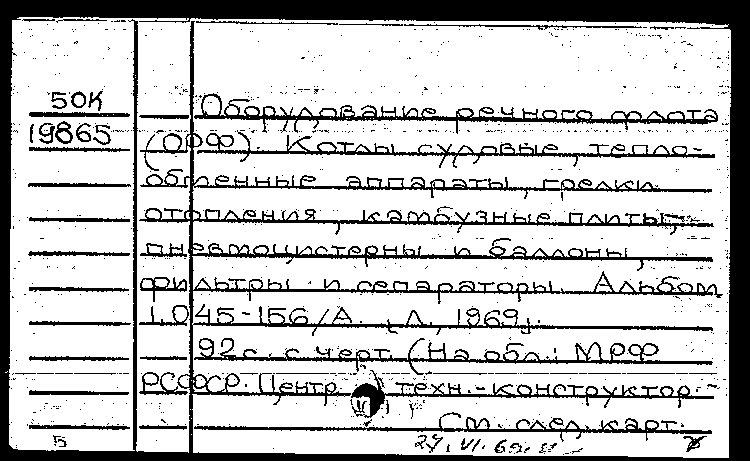 50К
19865
Оборудование речного флота
(ОРФ). Котлы судовые, тепло-
обменные аппараты, грелки
отопления, камбузные плиты,
пневмоцистерны и баллоны,
фильтры и сепараторы. Альбом
1.045-156/А. [Л., 1969].
92с. с черт. (На обл.: МРФ
РСФСР. Центр. техн.-конструктор.-
См. след. карт.
5
27.VI.69.